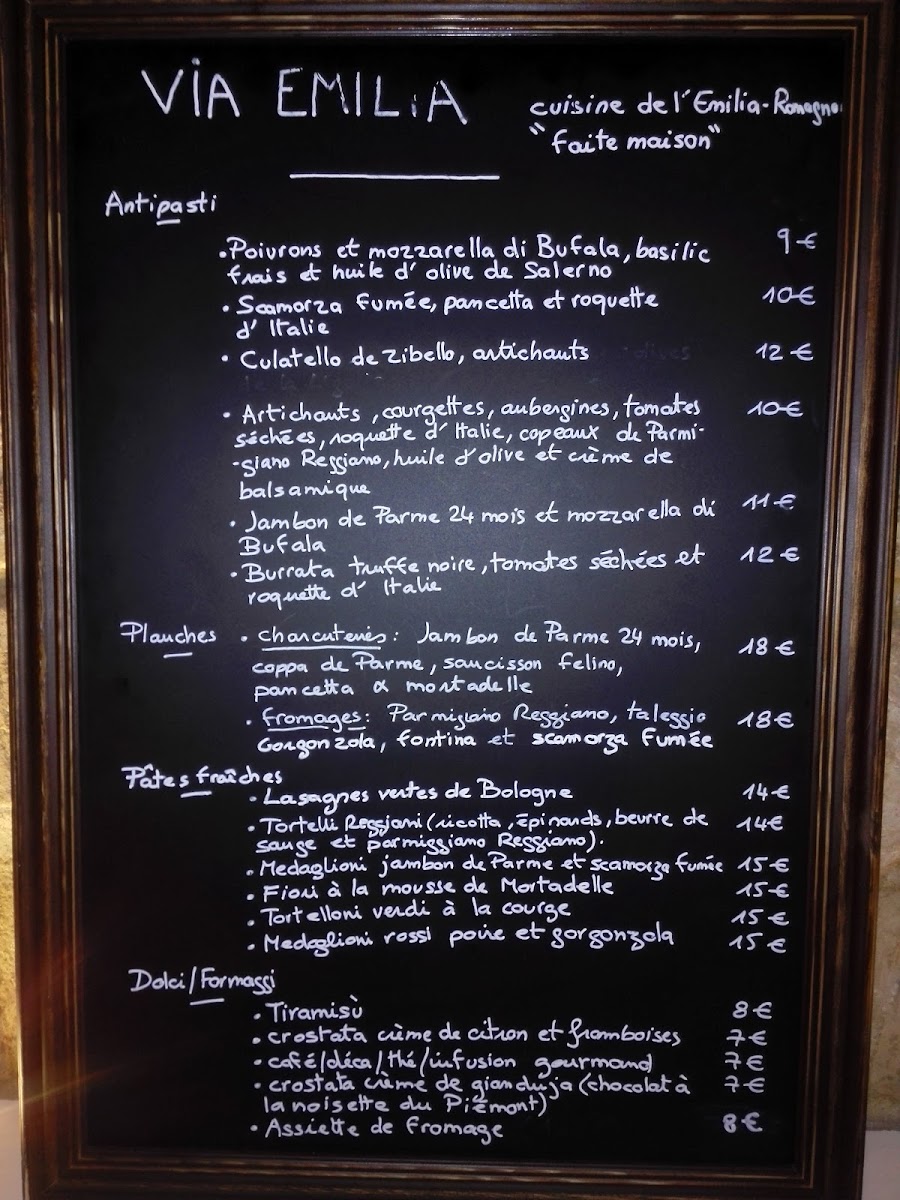 VIA EMILIA
cuisine de l'Emilia-Romagna
"faite maison"
Antipasti
• Poivrons et mozzarella di Bufala, basilic 9€
frais et huile d'olive de Salerno
• Scamorza fumée, pancetta et roquette 10€
d'Italie
• Culatello de Zibello, artichauts 12€
• Artichauts, courgettes, aubergines, tomates 10€
séchées, roquette d'Italie, copeaux de Parmi-
-giano Reggiano, huile d'olive et crème de
balsamique
• Jambon de Parme 24 mois et mozzarella di 11€
Bufala
• Burrata truffe noire, tomates séchées et 12€
roquette d'Italie
Planches • charcuteries: Jambon de Parme 24 mois, 18€
coppa de Parme, saucisson felino,
pancetta & mortadelle
• fromages: Parmigiano Reggiano, taleggio 18€
Gorgonzola, fontina et scamorza fumée
Pâtes fraîches
• Lasagnes vertes de Bologne 14€
• Tortelli Reggiani (ricotta, épinards, beurre de 14€
sauge et parmiggiano Reggiano).
• Medaglioni jambon de Parme et scamorza fumée 15€
• Fiori à la mousse de Mortadelle 15€
• Tortelloni verdi à la courge 15€
• Medaglioni rossi poire et gorgonzola 15€
Dolci/Formaggi
• Tiramisù 8€
• crostata crème de citron et framboises 7€
• café/déca/thé/infusion gourmand 7€
• crostata crème de gianduja (chocolat à 7€
la noisette du Piémont)
• Assiette de fromage 8€